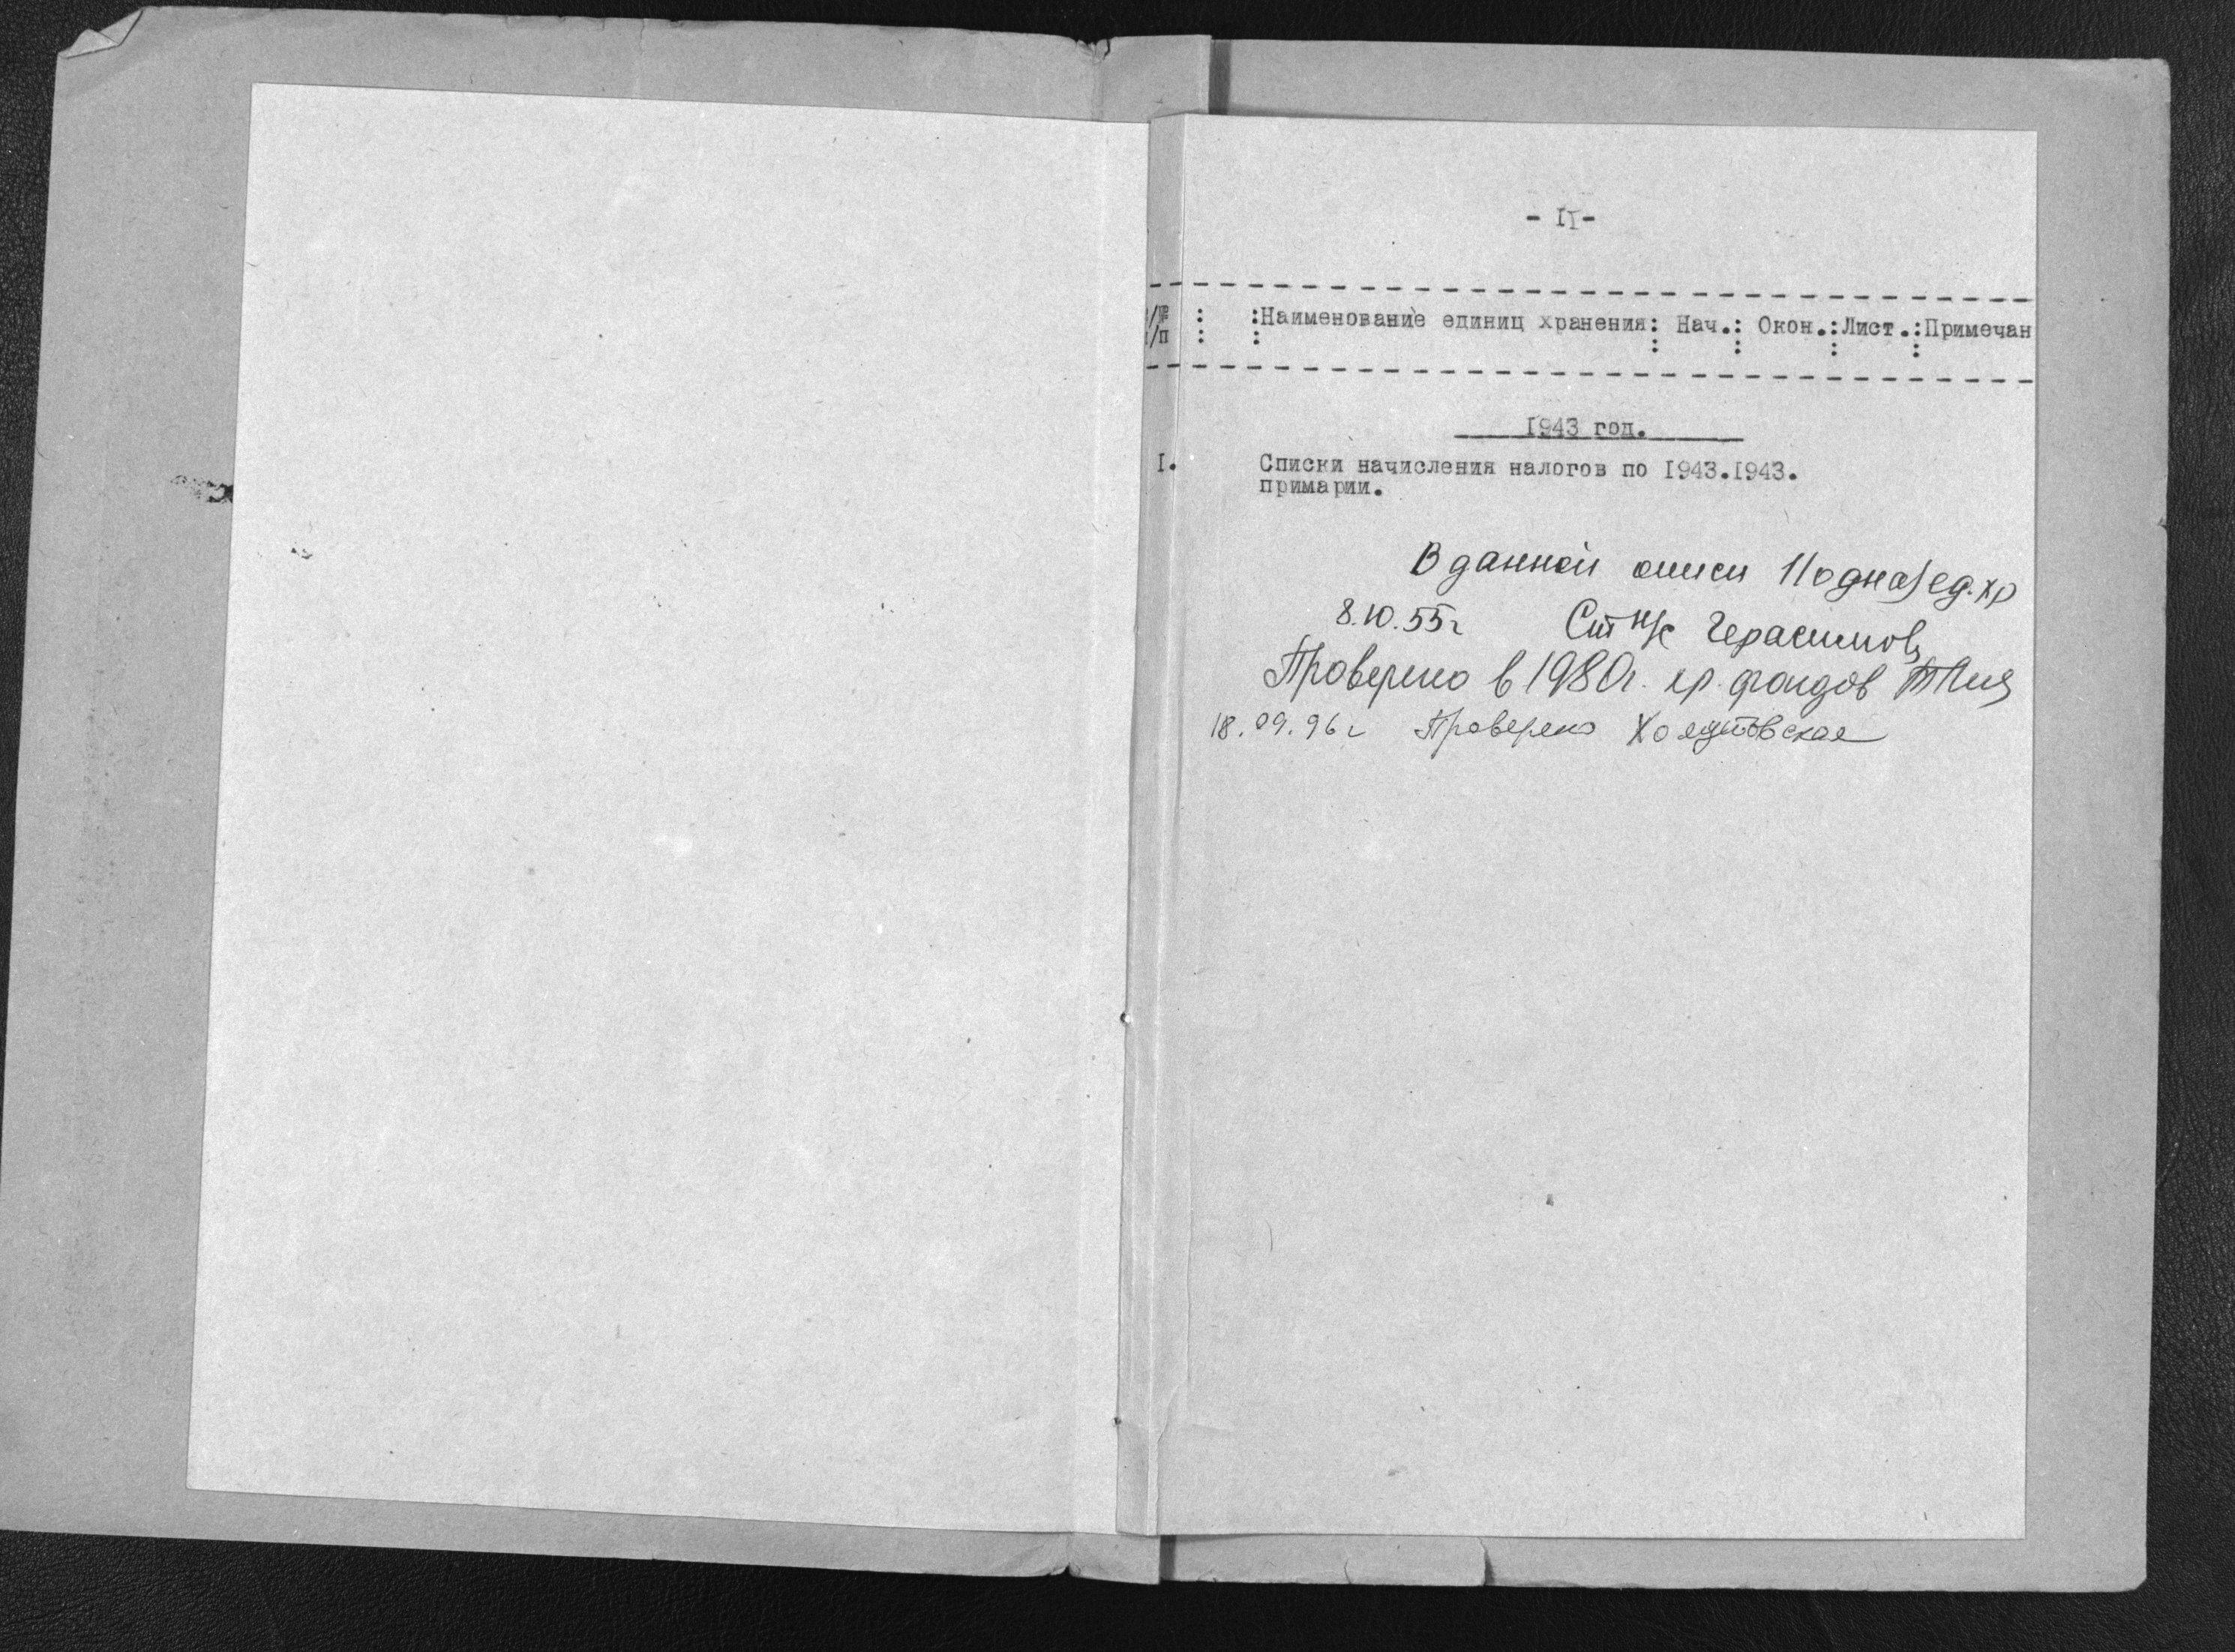 - II -
№/№ : :Наименование единиц хранения: Нач.: Окон.:Лист.:Примечан
п/п : : : : : :
1943 год.
I. Списки начисления налогов по 1943.1943.
примарии.
В данной описи 1(одна) ед. хр
8.10.55г Ст н/с Герасимов
Проверено в 1980г. хр. фондов
18.09.96г Проверено